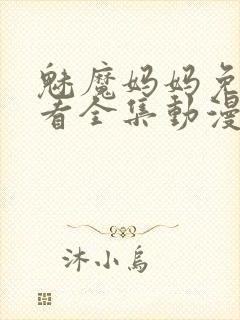 魅魔妈妈免
看全集動漫
沐小烏